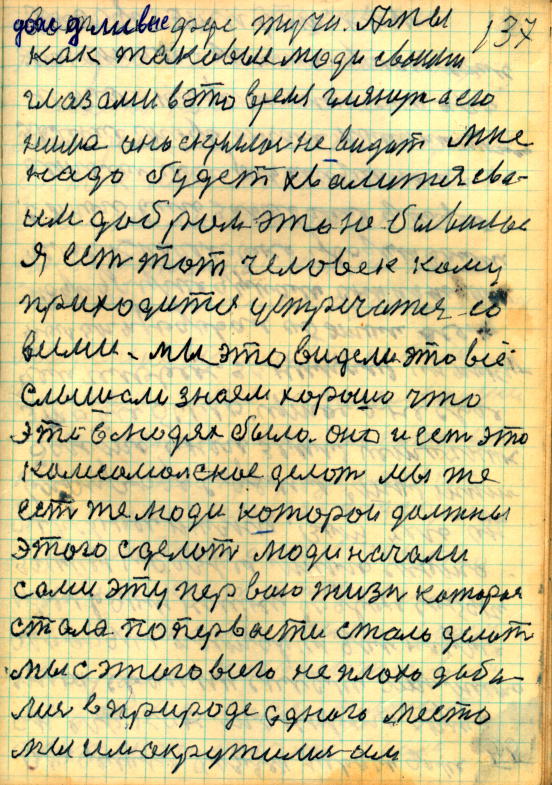 дождливые тучи. А мы 137
как таковые люди своими
глазами в это время гляним а его
нима оно скрылоя не видат мне
надо будет хвалития сва-
им добром это не бывалое
Я ест тот человек каму
приходится устречатея со
всими. мы это видели это всё
слышали знаем хорошо что
это в людях было. оно и ест это
камсамолское делот мы же
ест те люди которои должны
этого сделот люди начали
сами эту первою жизн которая
стала по первасти стало делот
мы с этого всего не плохо дабы-
лия в природе одного место
мы им окружилия им